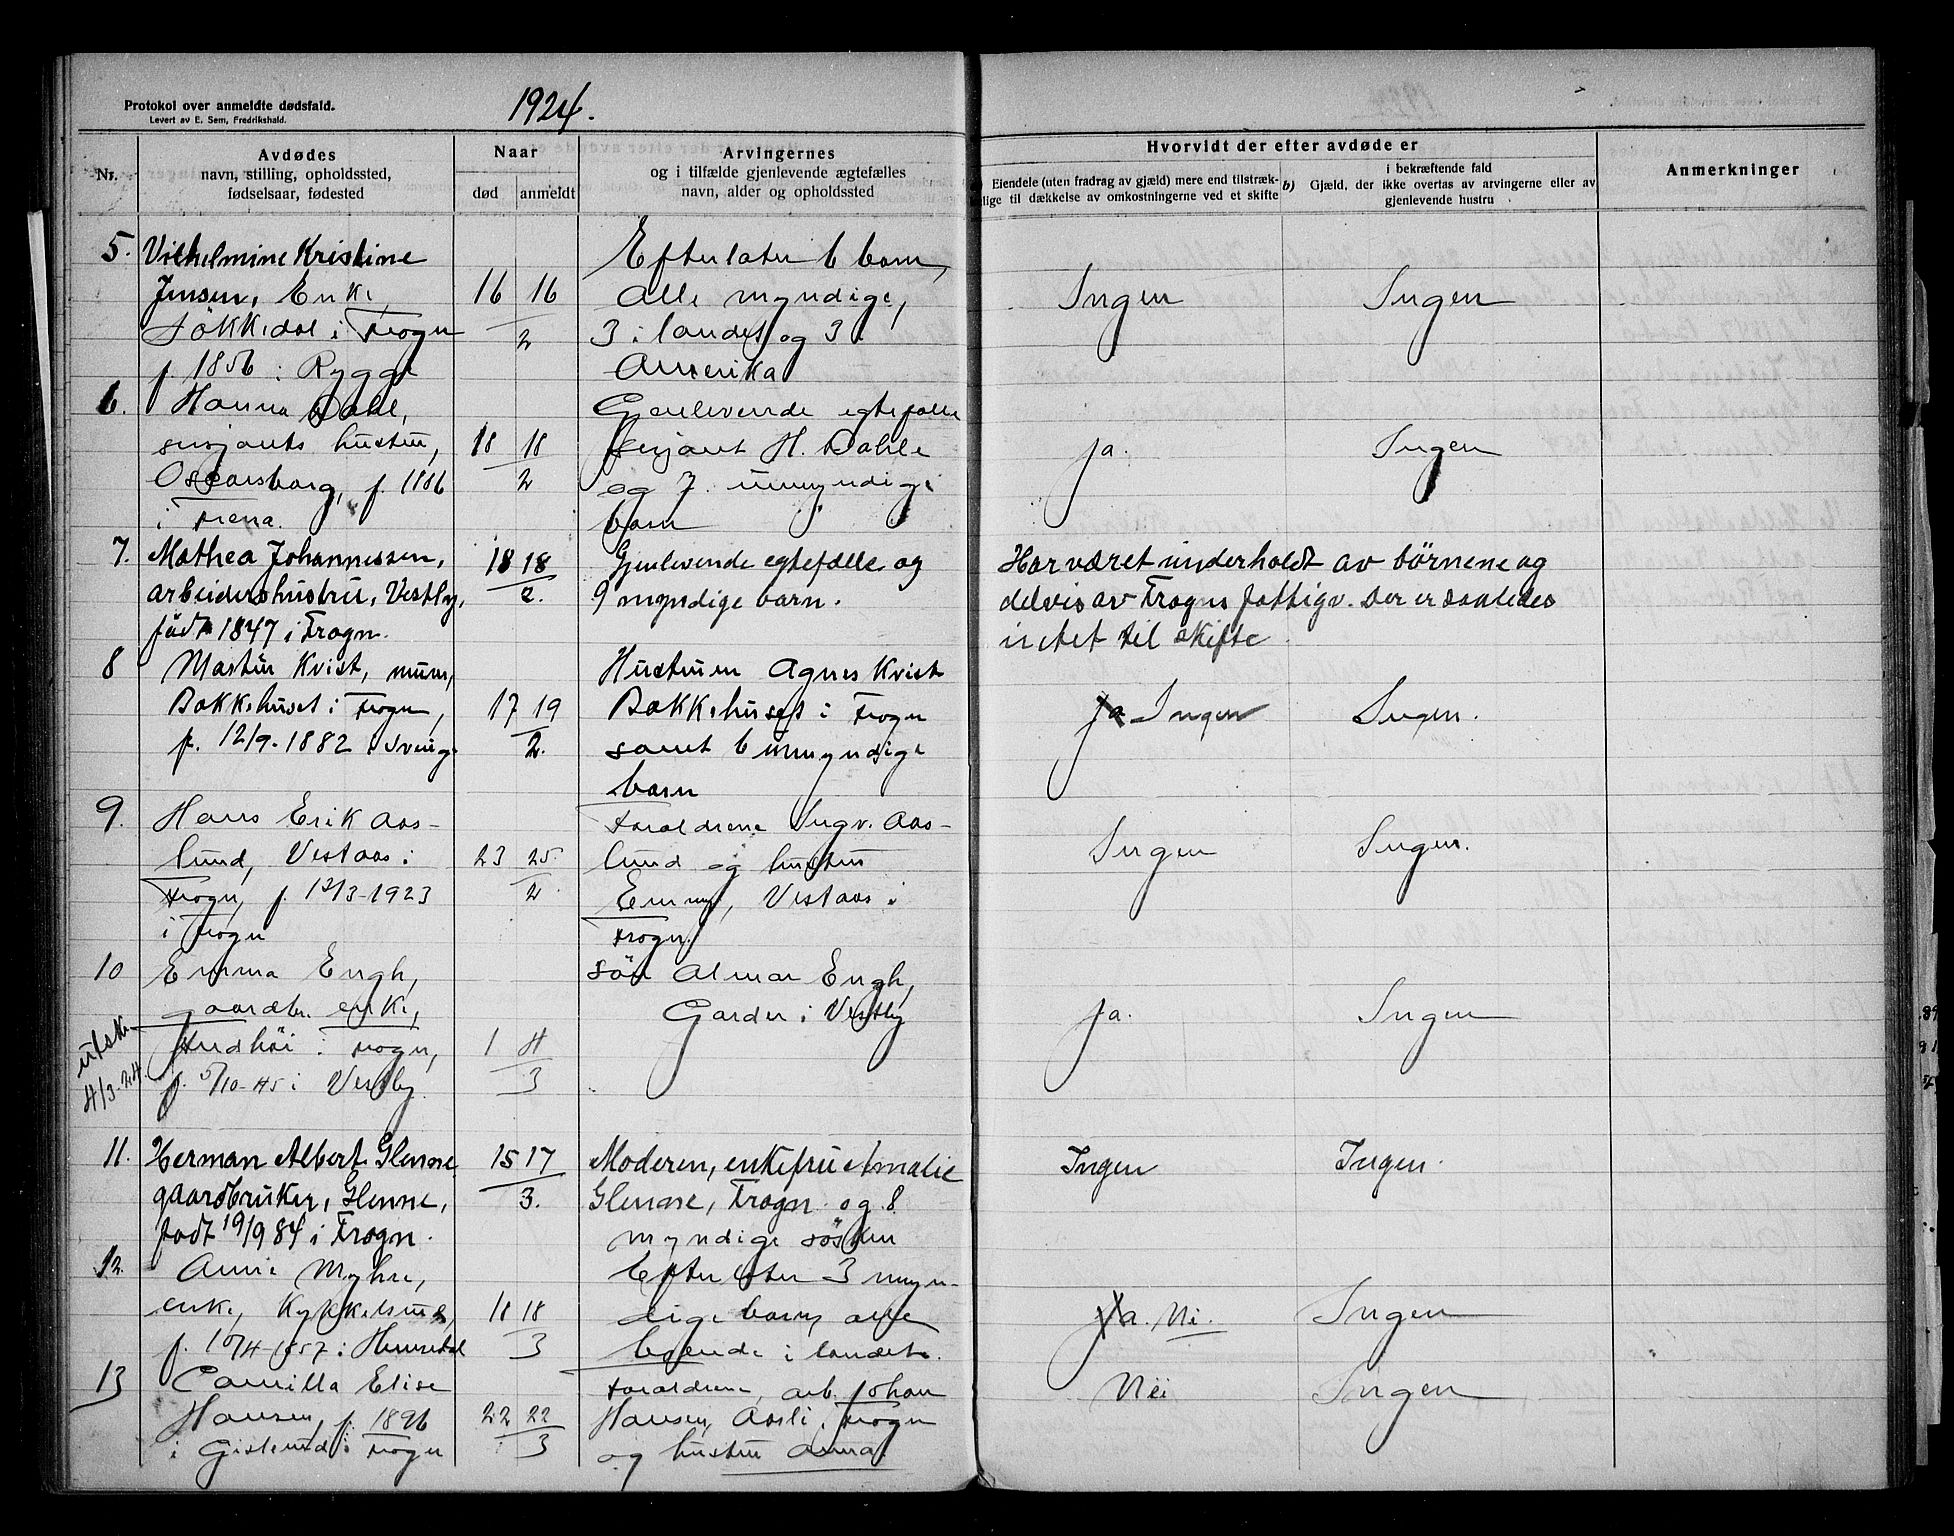 Protokol over anmeldte dødsfald.
Levert av E. Sem, Fredrikshald.
1924.
Nr.
Avdødes
navn, stilling, opholdssted,
fødselsaar, fødested
Naar
død
anmeldt
Arvingernes
og i tilfælde gjenlevende ægtefælles
navn, alder og opholdssted
Hvorvidt der efter avdøde er
Eiendele (uten fradrag av gjæld) mere end tilstræk-
lige til dækkelse av omkostningerne ved et skifte
b)
i bekræftende fald
Gjæld, der ikke overtas av arvingerne eller av
gjenlevende hustru
Anmerkninger
5.
Vilhelmine Kristine
Jensen, Enke,
i Frogn
f. 1856 i Rygge
16 16
2
Efterlater 6 barn,
alle myndige,
3 i landet og 3 i
Amerika
Ingen
Ingen
6.
Hanna Dahl,
serjants hustru,
Oscarsborg, f. 1886
i
18 18
2
Gjenlevende egtefælle
serjant H. Dahle
og 7 umyndige
barn
Ja.
Ingen
7.
Mathea Johannessen,
arbeidershustru, Vestby,
født 1847 i Frogn.
18 18
2.
Gjenlevende egtefælle og
9 myndige barn.
Har været underholdt av börnene og
delvis av Frogns fattigv. Der er saaledes
intet til skifte.
8
Martin Kvist, murer,
Bakkehuset i Frogn,
f. 12/9-1882 i
17 19
2.
Hustruen Agnes Kvist
Bakkehuset i Frogn
samt 6 umyndige
barn
Ja Ingen
Ingen.
9.
Hans Erik Aas-
lund, Vestaas i
Frogn, f. 12/3-1923
i Frogn
23 25
2
Foraldrene Ingv. Aas-
lund og hustru
Emmy, Vestaas i
Frogn.
Ingen
Ingen.
10
Emma Engh,
gaardbr. enke,
i Frogn,
f. 5/10-45 i Vestby
utskr.
4/3-24.
1 4
3
Sön Almar Engh,
Garder i Vestby
Ja.
Ingen
11.
Herman Albert Glenne
gaardbruker, Glenne,
født 19/9 84 i Frogn.
15 17
3.
Moderen, enkefru Amalie
Glenne, Frogn og 8
myndige søsken
Ingen
Ingen.
12.
Anne Myhre,
enke,
f. 10/4-1857 i Hemsedal
18 18
3
Efterlater 3 myn-
dige barn, alle
boende i landet.
Ja. Nei.
Ingen
13
Camilla Elise
Hansen, f. 1896
i Gislerud i Frogn
22 22
3
Foraldrene, arb. Johan
Hansen, Aasli i Frogn
og hustru Anna.
Nei
Ingen